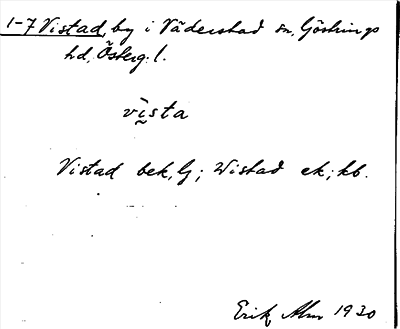 1-7 Vistad, by i Väderstad sn, Göstrings
hd, Österg. l.
vìsta
Vistad bek, G; Wistad ek; kb.
Erik Alm 1930